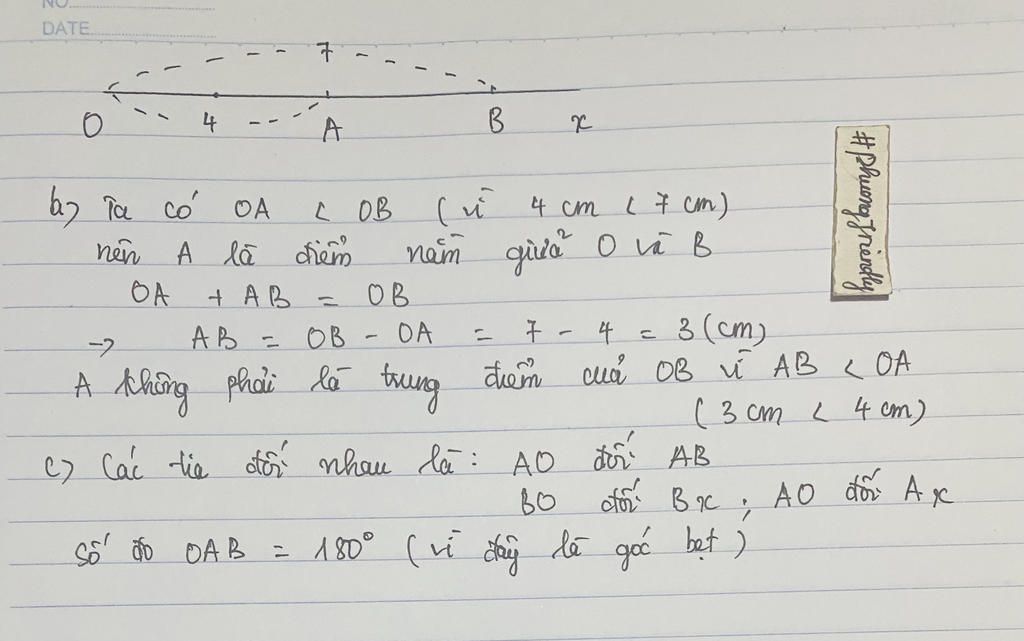 NO.
DATE
7
4
O A B x
b) Ta có OA < OB (vì 4 cm < 7 cm)
nên A là điểm nằm giữa O và B
OA + AB = OB
→ AB = OB - OA = 7 - 4 = 3 (cm)
A không phải là trung điểm của OB vì AB < OA
(3 cm < 4 cm)
c) Các tia đối nhau là: AO đối AB
BO đối Bx ; AO đối Ax
Số đo OAB = 180° (vì đây là góc bẹt)
#phuongfriendly